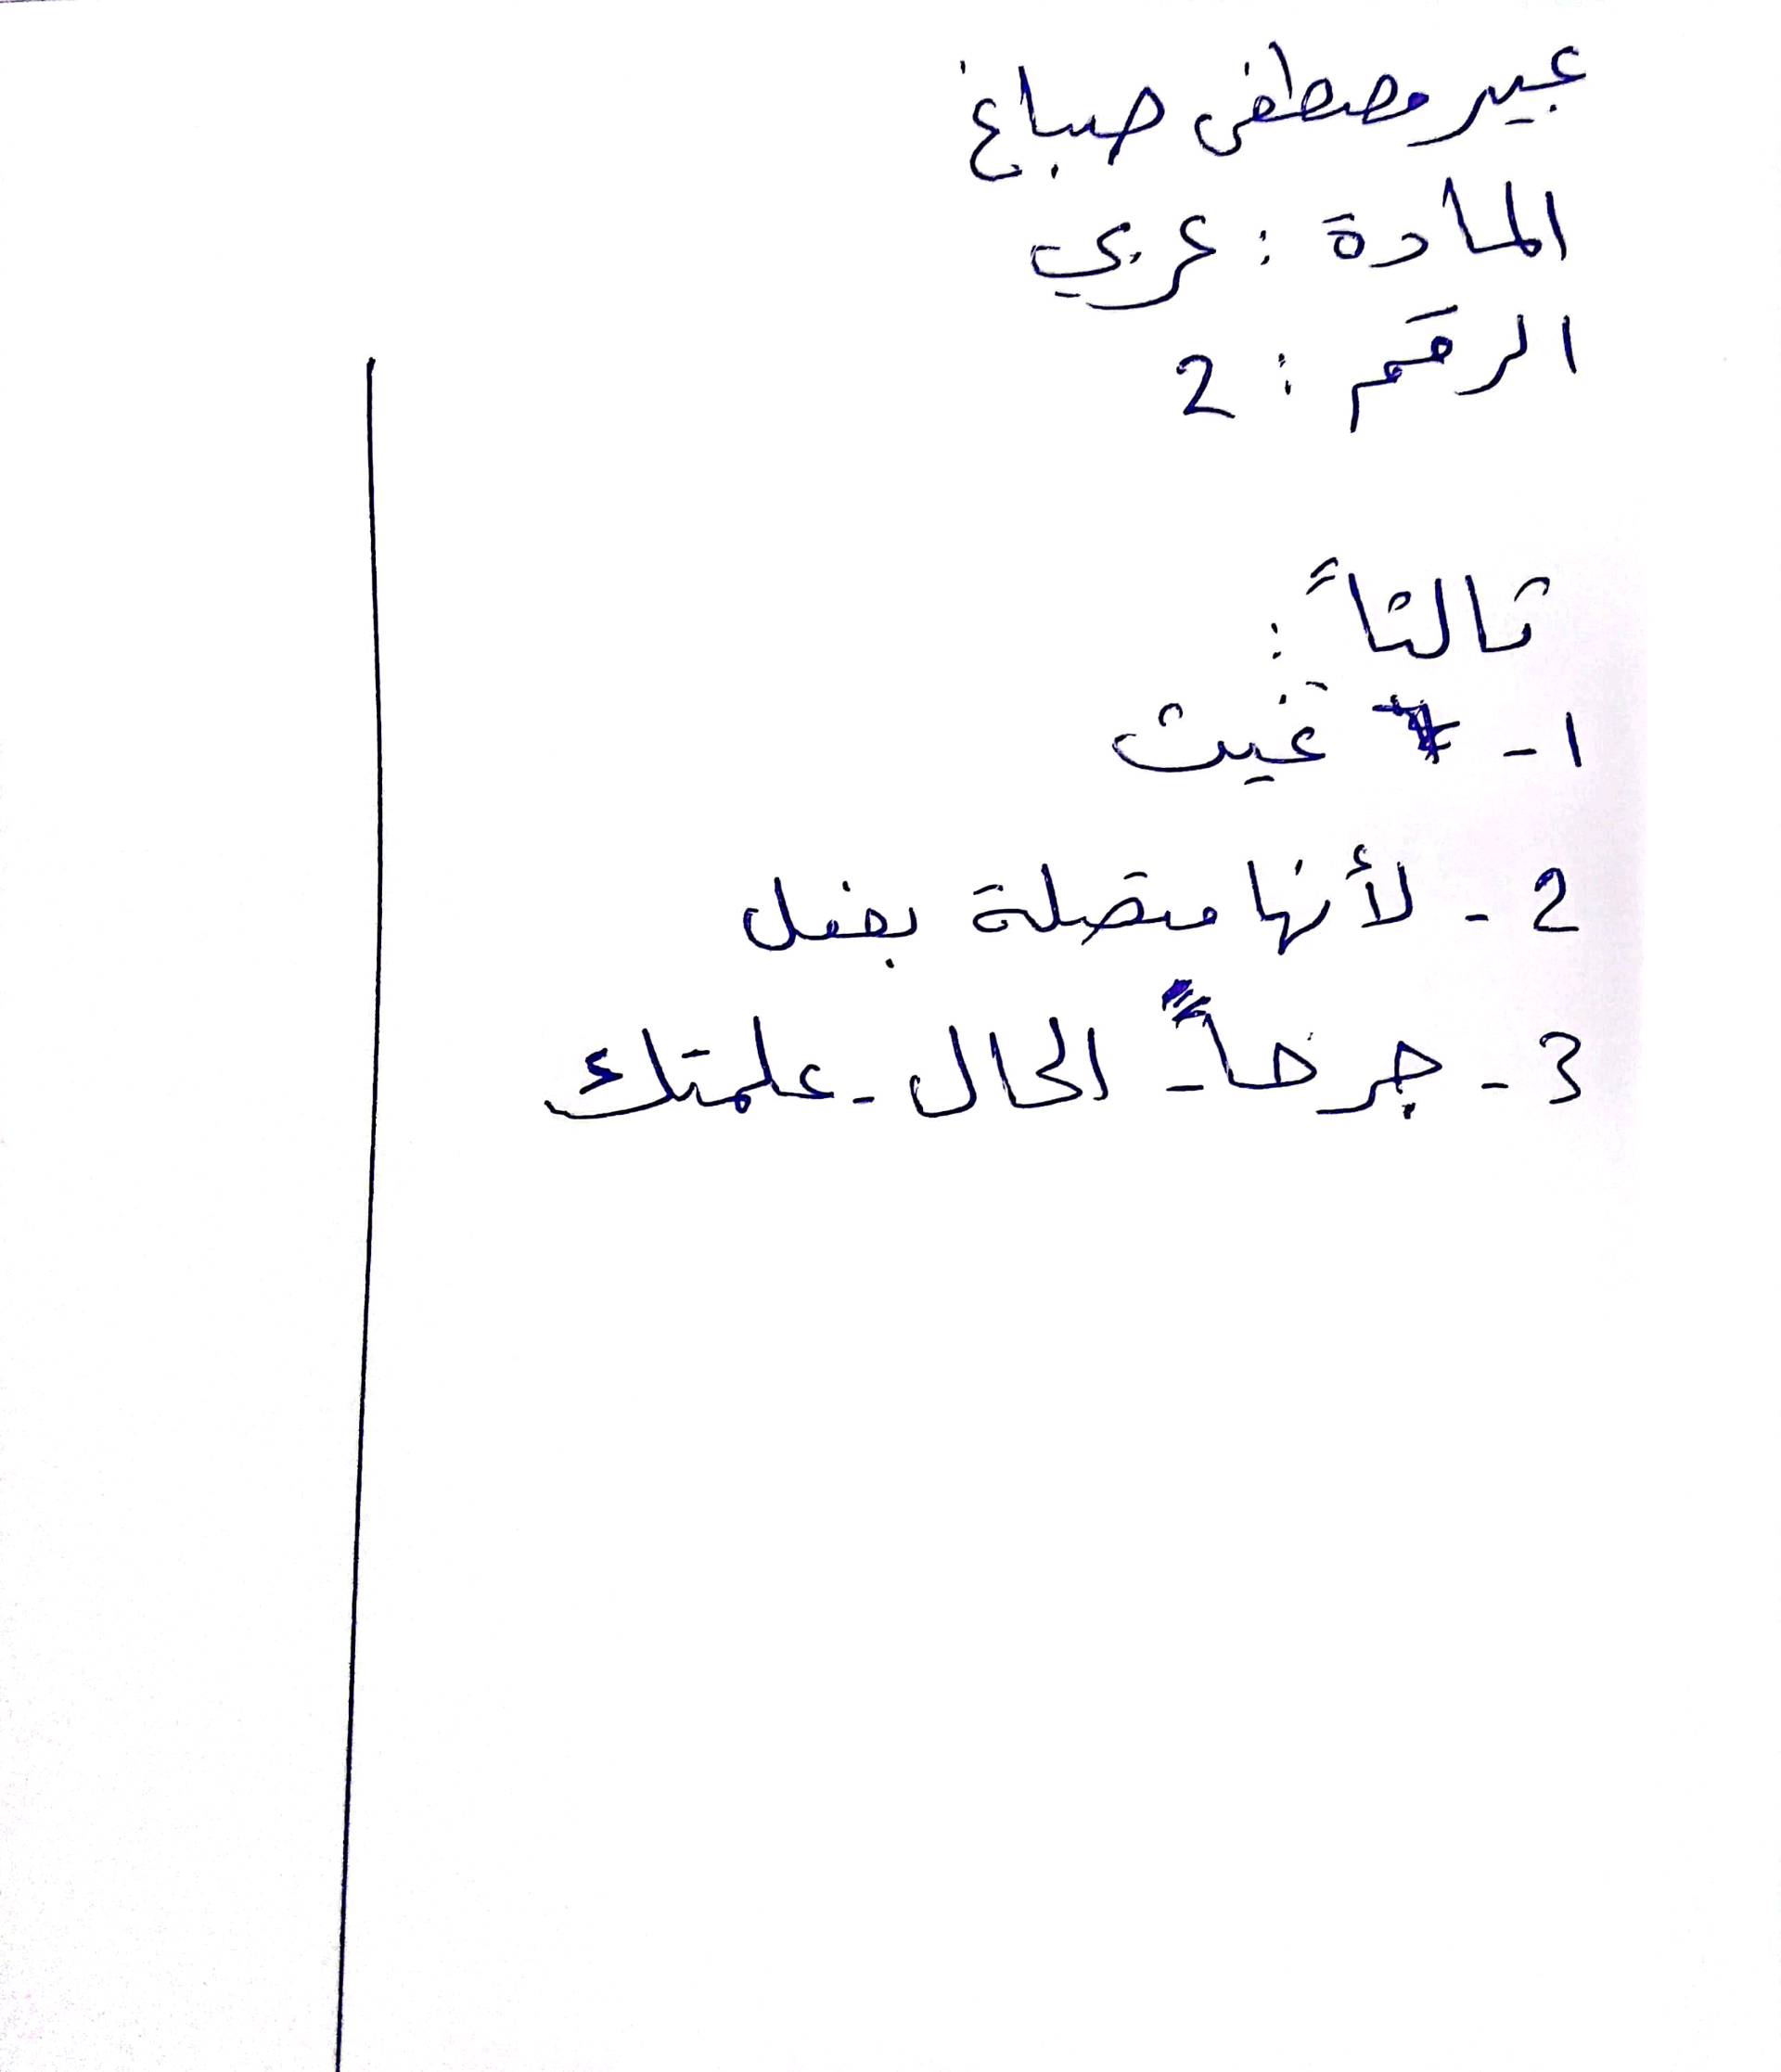 عبير مصطفى صباغ
المادة : عربي
الرقم : 2
ثالثاً :
1 - غيث
2 - لأنها متصلة بفعل
3 - جرحاً - الحال - علمتك